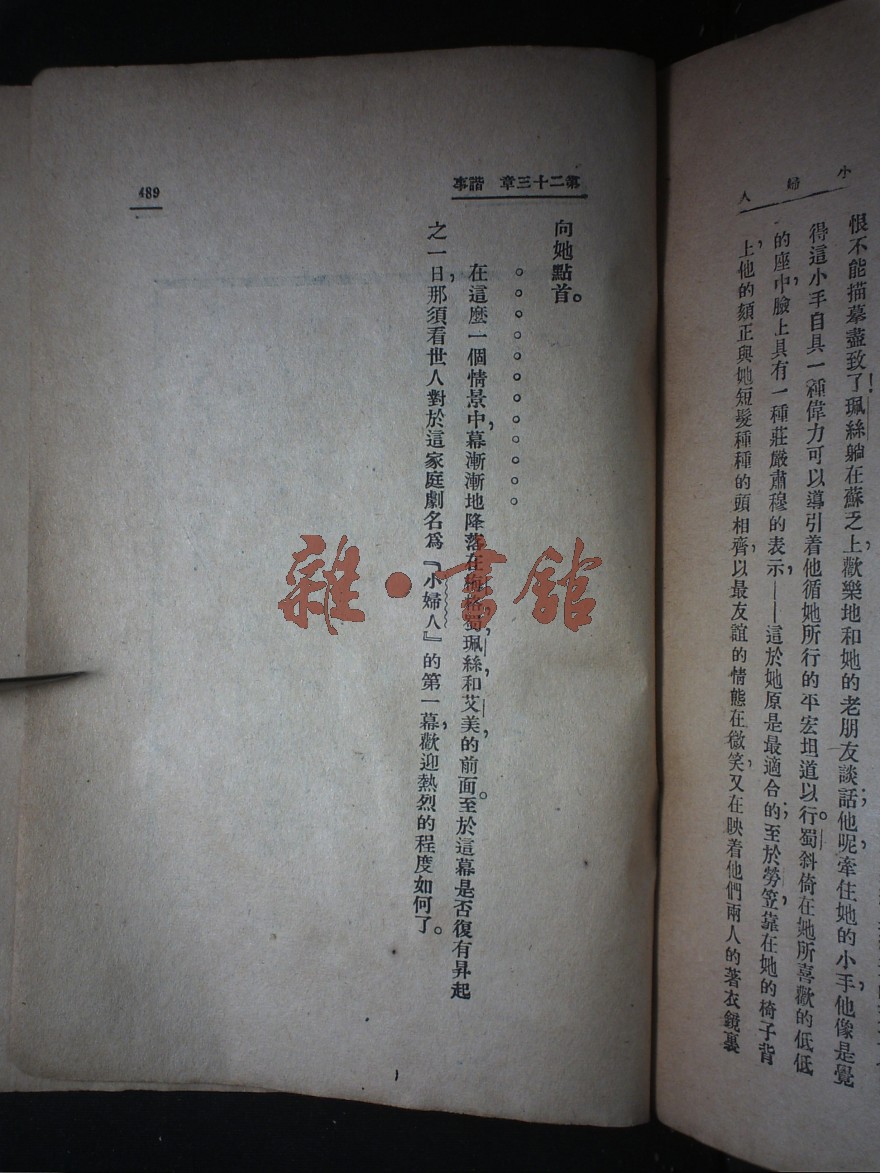 小婦人
恨不能描摹盡致了！珮絲躺在蘇乏上，歡樂地和她的老朋友談話；他呢，牽住她的小手，他像是覺
得這小手自具一種偉力可以導引着他循她所行的平宏坦道以行。蜀斜倚在她所喜歡的低低
的座中，臉上具有一種莊嚴肅穆的表示，——這於她原是最適合的；至於勞笠，靠在她的椅子背
上，他的頦正與她短髮種種的頭相齊，以最友誼的情態在微笑，又在映着他們兩人的著衣鏡裏
第二十三章 諧事
489
向她點首。
。。。。。。。。。。。。
在這麼一個情景中，幕漸漸地降落在梅格，蜀，珮絲，和艾美的前面。至於這幕是否復有昇起
之一日，那須看世人對於這家庭劇名爲『小婦人』的第一幕，歡迎熱烈的程度如何了。
雜·書館